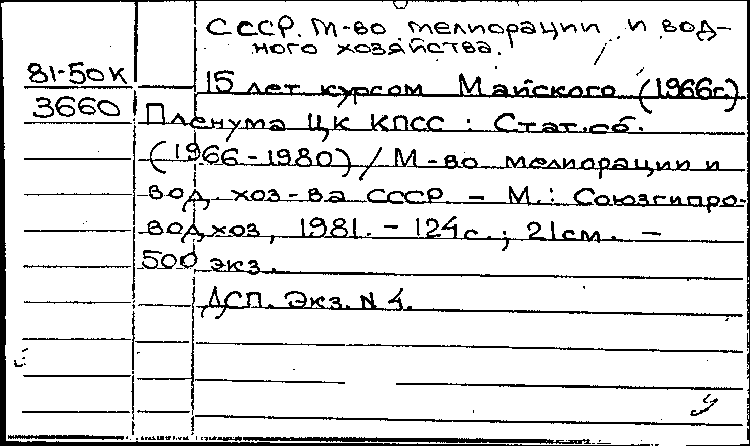 СССР. М-во мелиорации и вод-
ного хозяйства.
81-50К 15 лет курсом Майского (1966г.)
3660 Пленума ЦК КПСС : Стат.сб.
(1966-1980) / М-во мелиорации и
вод. хоз-ва СССР. - М.: Союзгипро-
водхоз, 1981. - 124с.; 21см. -
500 экз.
ДСП. Экз. N 4.